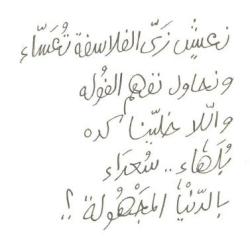 نعيش زيّ الفلاسفة تُعَسَاء
ونحاول نفهم الفُولَه
واللا خلّينا كده
بُلَهَاء.. سُعَدَاء
بالدّنْيا المجْهُولَة؟!